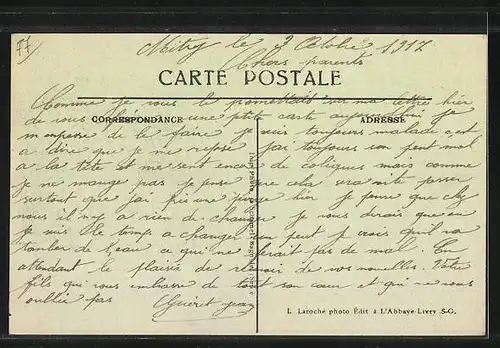 77
Mitry le 3 Octobre 1917
Chers parents
CARTE POSTALE
Comme je vous le promettais sur ma lettre hier
CORRESPONDANCE
ADRESSE
de vous une ptite carte aujourd'hui je
m'empresse de la faire je suis toujours malade c'est
a dire que je me repose j'ai toujours un peut mal
a la tete et me sent encore de coliques mais comme
je ne mange pas je pense que cela sera vite passer
surtout que j'ai pris une purge hier je pense que chez
nous il n'y a rien de changer je vous dirais que
je suis le temp a changer un peut je crois qu'il va
tomber de l'eau ce qui ne ferait pas de mal En
attendant le plaisir de recevoir de vos nouvelles. Votre
fils qui vous embrasse de tout son cœur et qui ne vous
oublie pas
Guéret jean
L. Laroche photo Édit à L'Abbaye-Livry S-G.